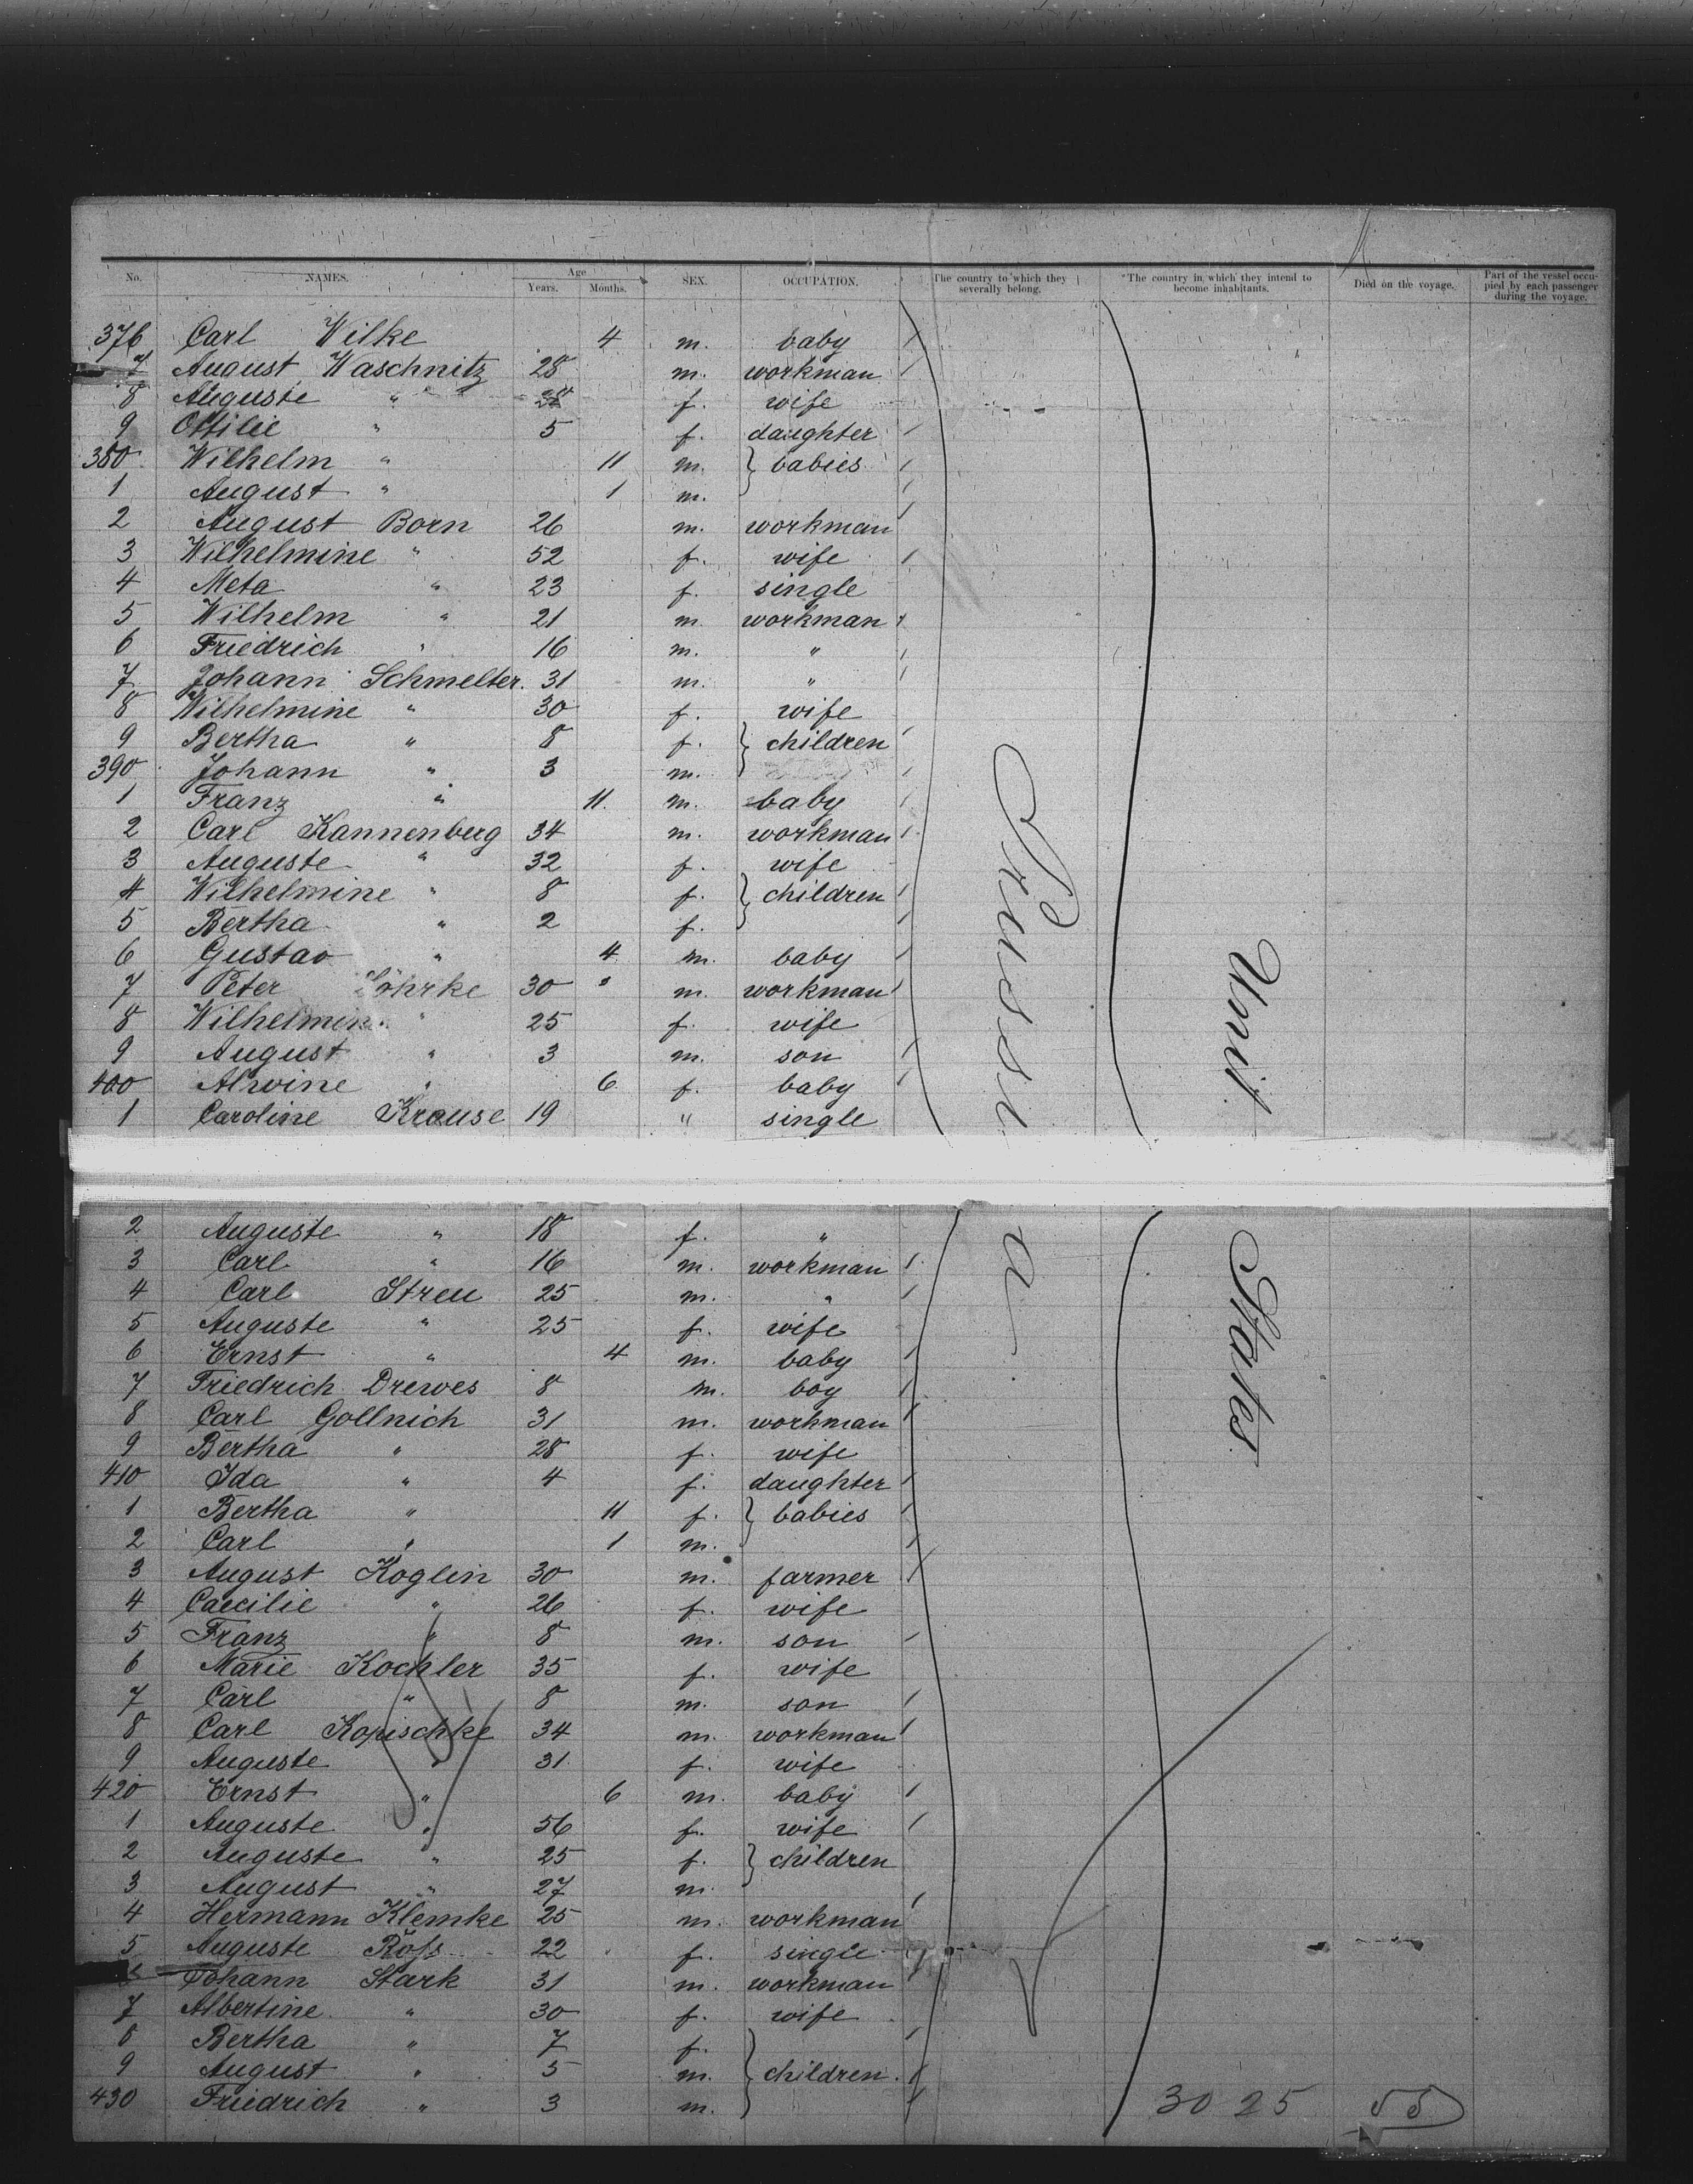 No. NAMES. Age Years. Months. SEX. OCCUPATION. The country to which they severally belong. The country in which they intend to become inhabitants. Died on the voyage. Part of the vessel occupied by each passenger during the voyage.
376 Carl Wilke 4 m. baby
7 August Waschnitz 28 m. workman
8 Auguste " 28 f. wife
9 Ottilie " 5 f. daughter
380 Wilhelm " 11 m. } babies
1 August " 1 m.
2 August Born 26 m. workman
3 Wilhelmine " 52 f. wife
4 Meta " 23 f. single
5 Wilhelm " 21 m. workman
6 Friedrich " 16 m. "
7 Johann Schmelter. 31 m. "
8 Wilhelmine " 30 f. wife
9 Bertha " 8 f. } children
390 Johann " 3 m.
1 Franz " 11. m. baby
2 Carl Kannenberg 34 m. workman
3 Auguste " 32 f. wife
4 Wilhelmine " 8 f. } children
5 Bertha " 2 f.
6 Gustav " 4 m. baby
7 Peter 30 m. workman
8 Wilhelmine " 25 f. wife
9 August " 3 m. son
400 Alwine " 6 f. baby
1 Caroline Krause 19 " single
2 Auguste " 18 f. "
3 Carl " 16 m. workman
4 Carl Streu 25 m. "
5 Auguste " 25 f. wife
6 Ernst " 4 m. baby
7 Friedrich Drewes 8 m. boy
8 Carl Gollnich 31 m. workman
9 Bertha " 28 f. wife
410 Ida " 4 f. daughter
1 Bertha " 11 f. } babies
2 Carl " 1 m.
3 August Koglin 30 m. farmer
4 Caecilie " 26 f. wife
5 Franz " 8 m. son
6 Marie Kochler 35 f. wife
7 Carl " 8 m. son
8 Carl Kopischke 34 m. workman
9 Auguste " 31 f. wife
420 Ernst " 6 m. baby
1 Auguste " 56 f. wife
2 Auguste " 25 f. } children
3 August " 27 m.
4 Hermann Klemke 25 m. workman
5 Auguste Röfs 22 f. single
6 Johann Stark 31 m. workman
7 Albertine " 30 f. wife
8 Bertha " 7 f.
9 August " 5 m. } children
430 Friedrich " 3 m.
Prussia
Unit. States
30 25 55